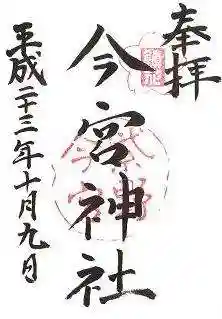 奉拝
今宮神社
平成二十三年十月九日